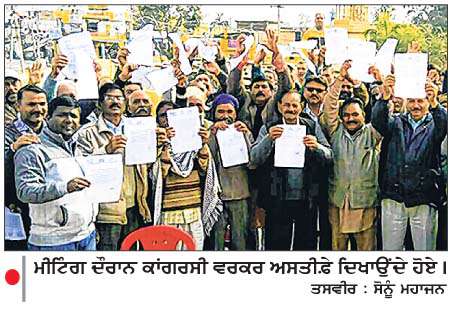 ਮੀਟਿੰਗ ਦੌਰਾਨ ਕਾਂਗਰਸੀ ਵਰਕਰ ਅਸਤੀਫ਼ੇ ਦਿਖਾਉਂਦੇ ਹੋਏ।
ਤਸਵੀਰ : ਸੋਨੂੰ ਮਹਾਜਨ